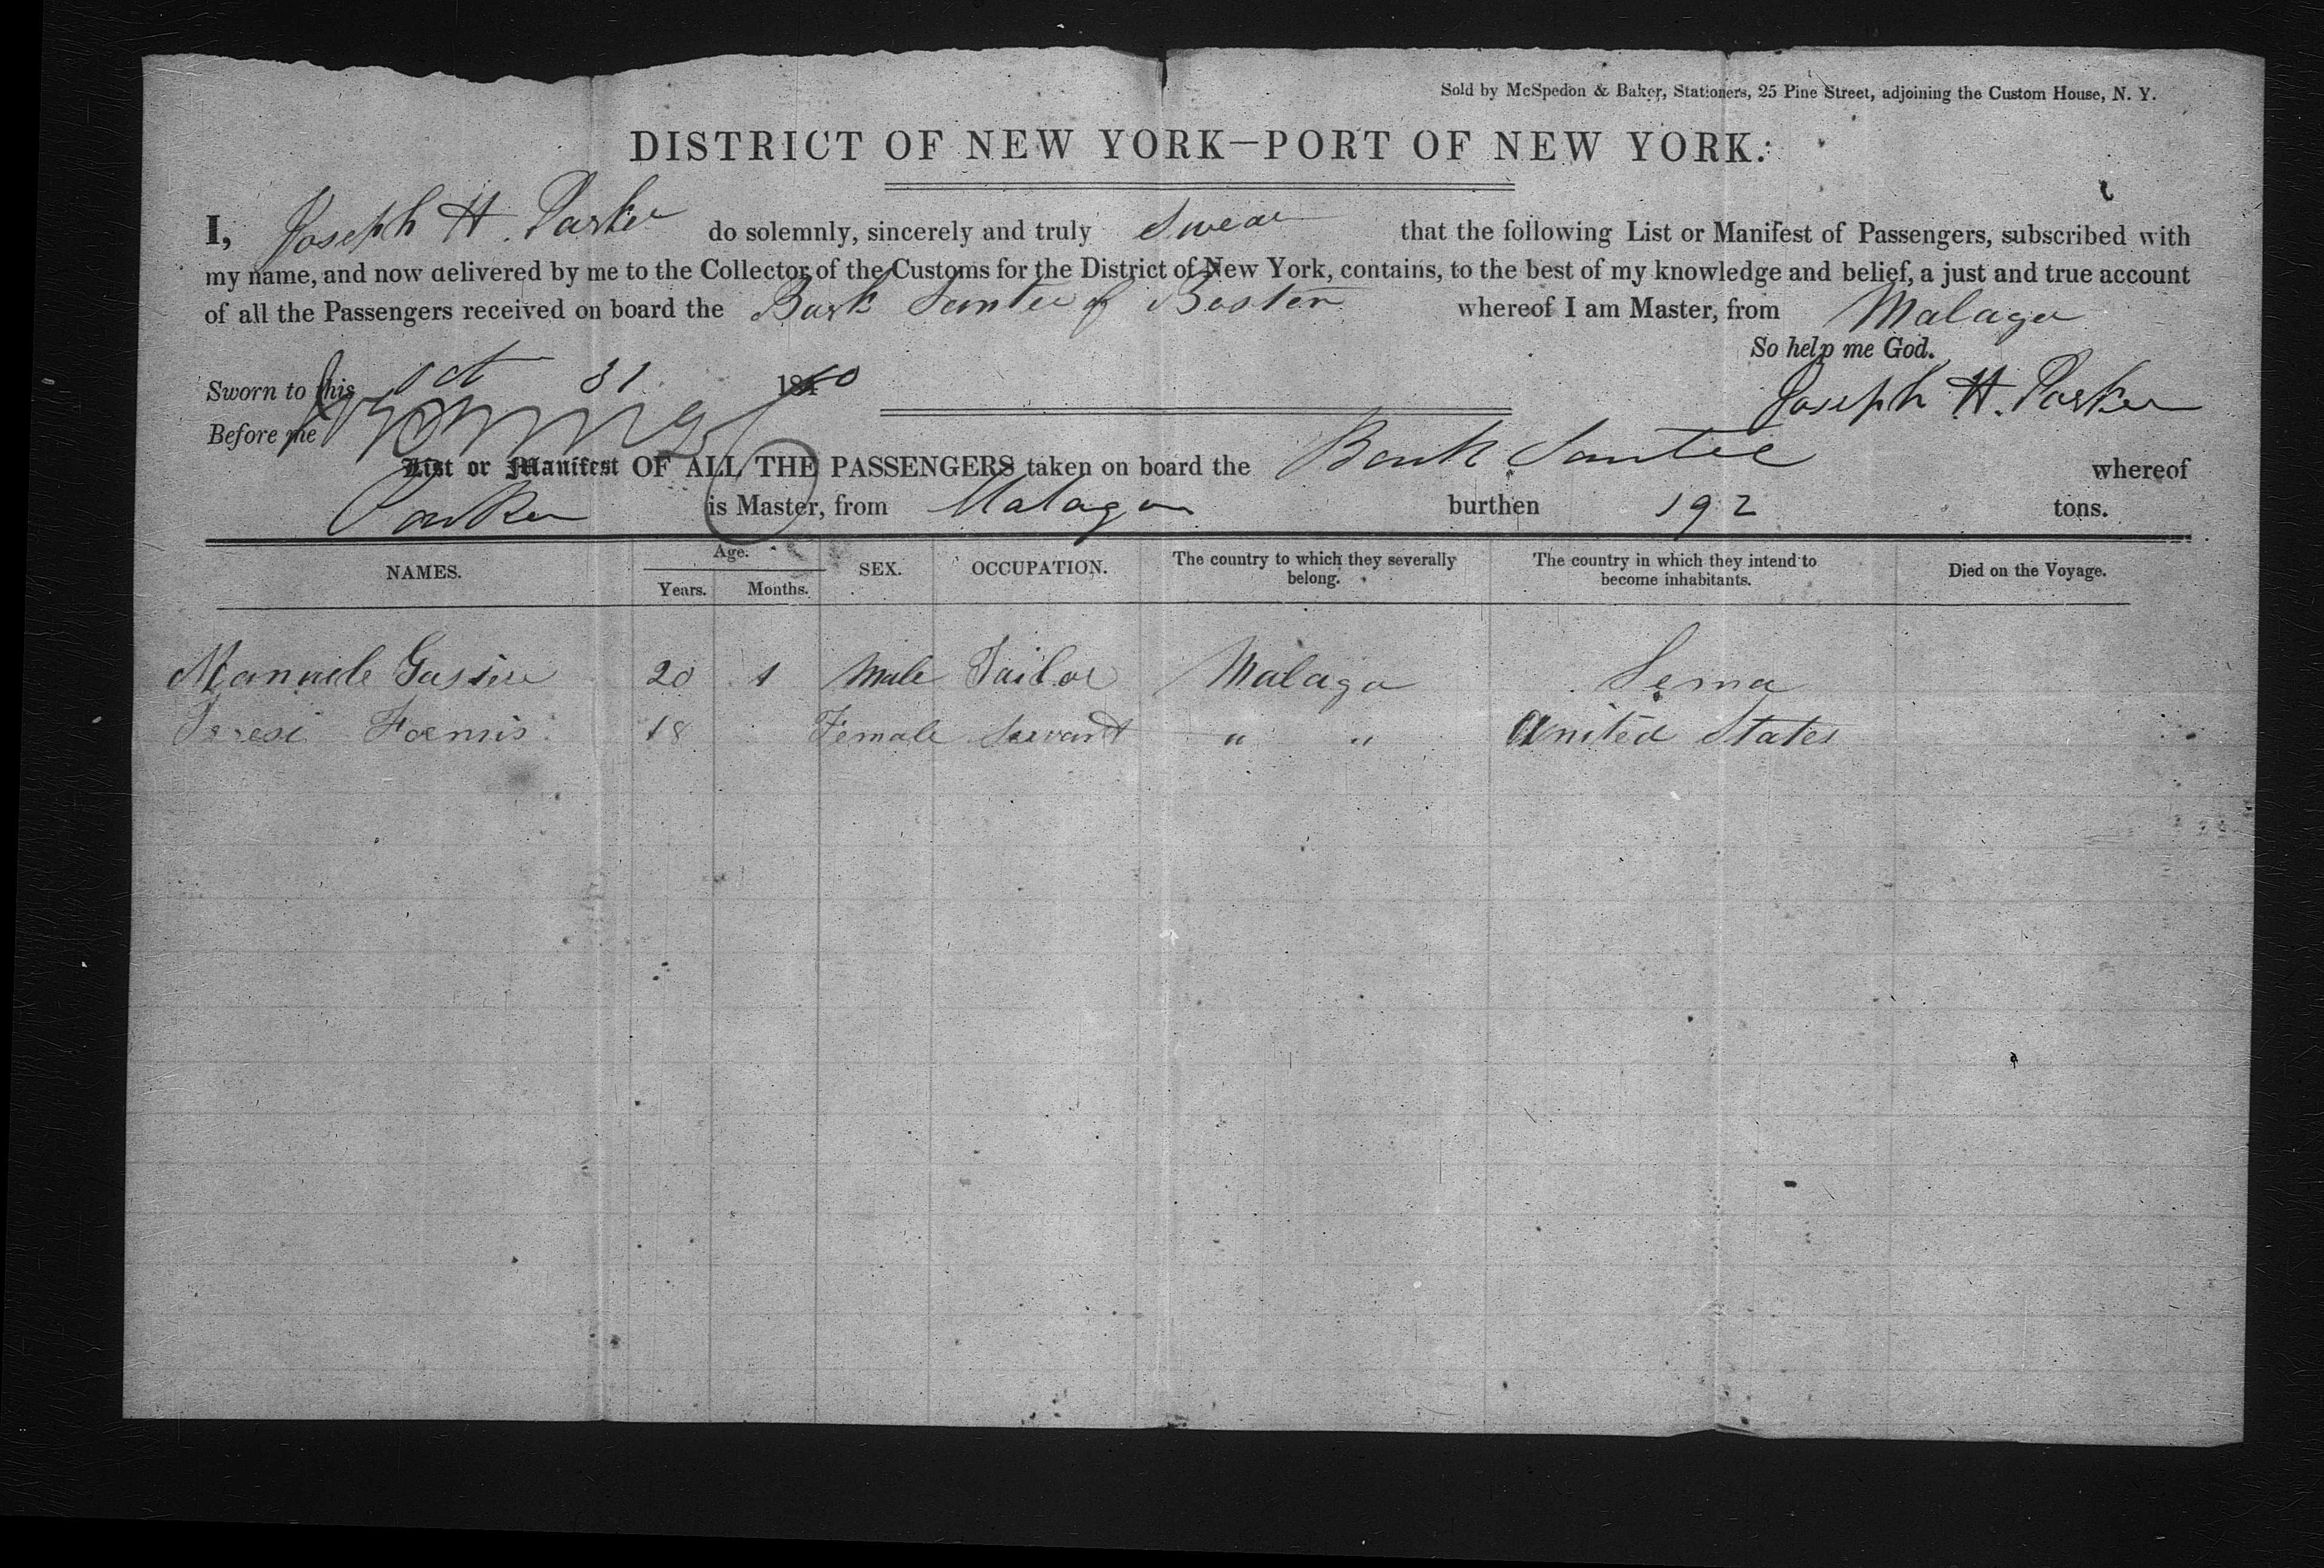 Sold by McSpedon & Baker, Stationers, 25 Pine Street, adjoining the Custom House, N. Y.
DISTRICT OF NEW YORK—PORT OF NEW YORK.
I, Joseph H. Parker do solemnly, sincerely and truly Swear that the following List or Manifest of Passengers, subscribed with
my name, and now delivered by me to the Collector of the Customs for the District of New York, contains, to the best of my knowledge and belief, a just and true account
of all the Passengers received on board the Bark Santee of Boston whereof I am Master, from Malaga
So help me God.
Sworn to this Oct 31 1850
Joseph H. Parker
Before me
List or Manifest OF ALL THE PASSENGERS taken on board the Bark Santee whereof
Parker is Master, from Malaga burthen 192 tons.
NAMES. Age. Years. Months. SEX. OCCUPATION. The country to which they severally belong. The country in which they intend to become inhabitants. Died on the Voyage.
Manuele 20 1 Male Tailor Malaga
18 Female Servant " " United States